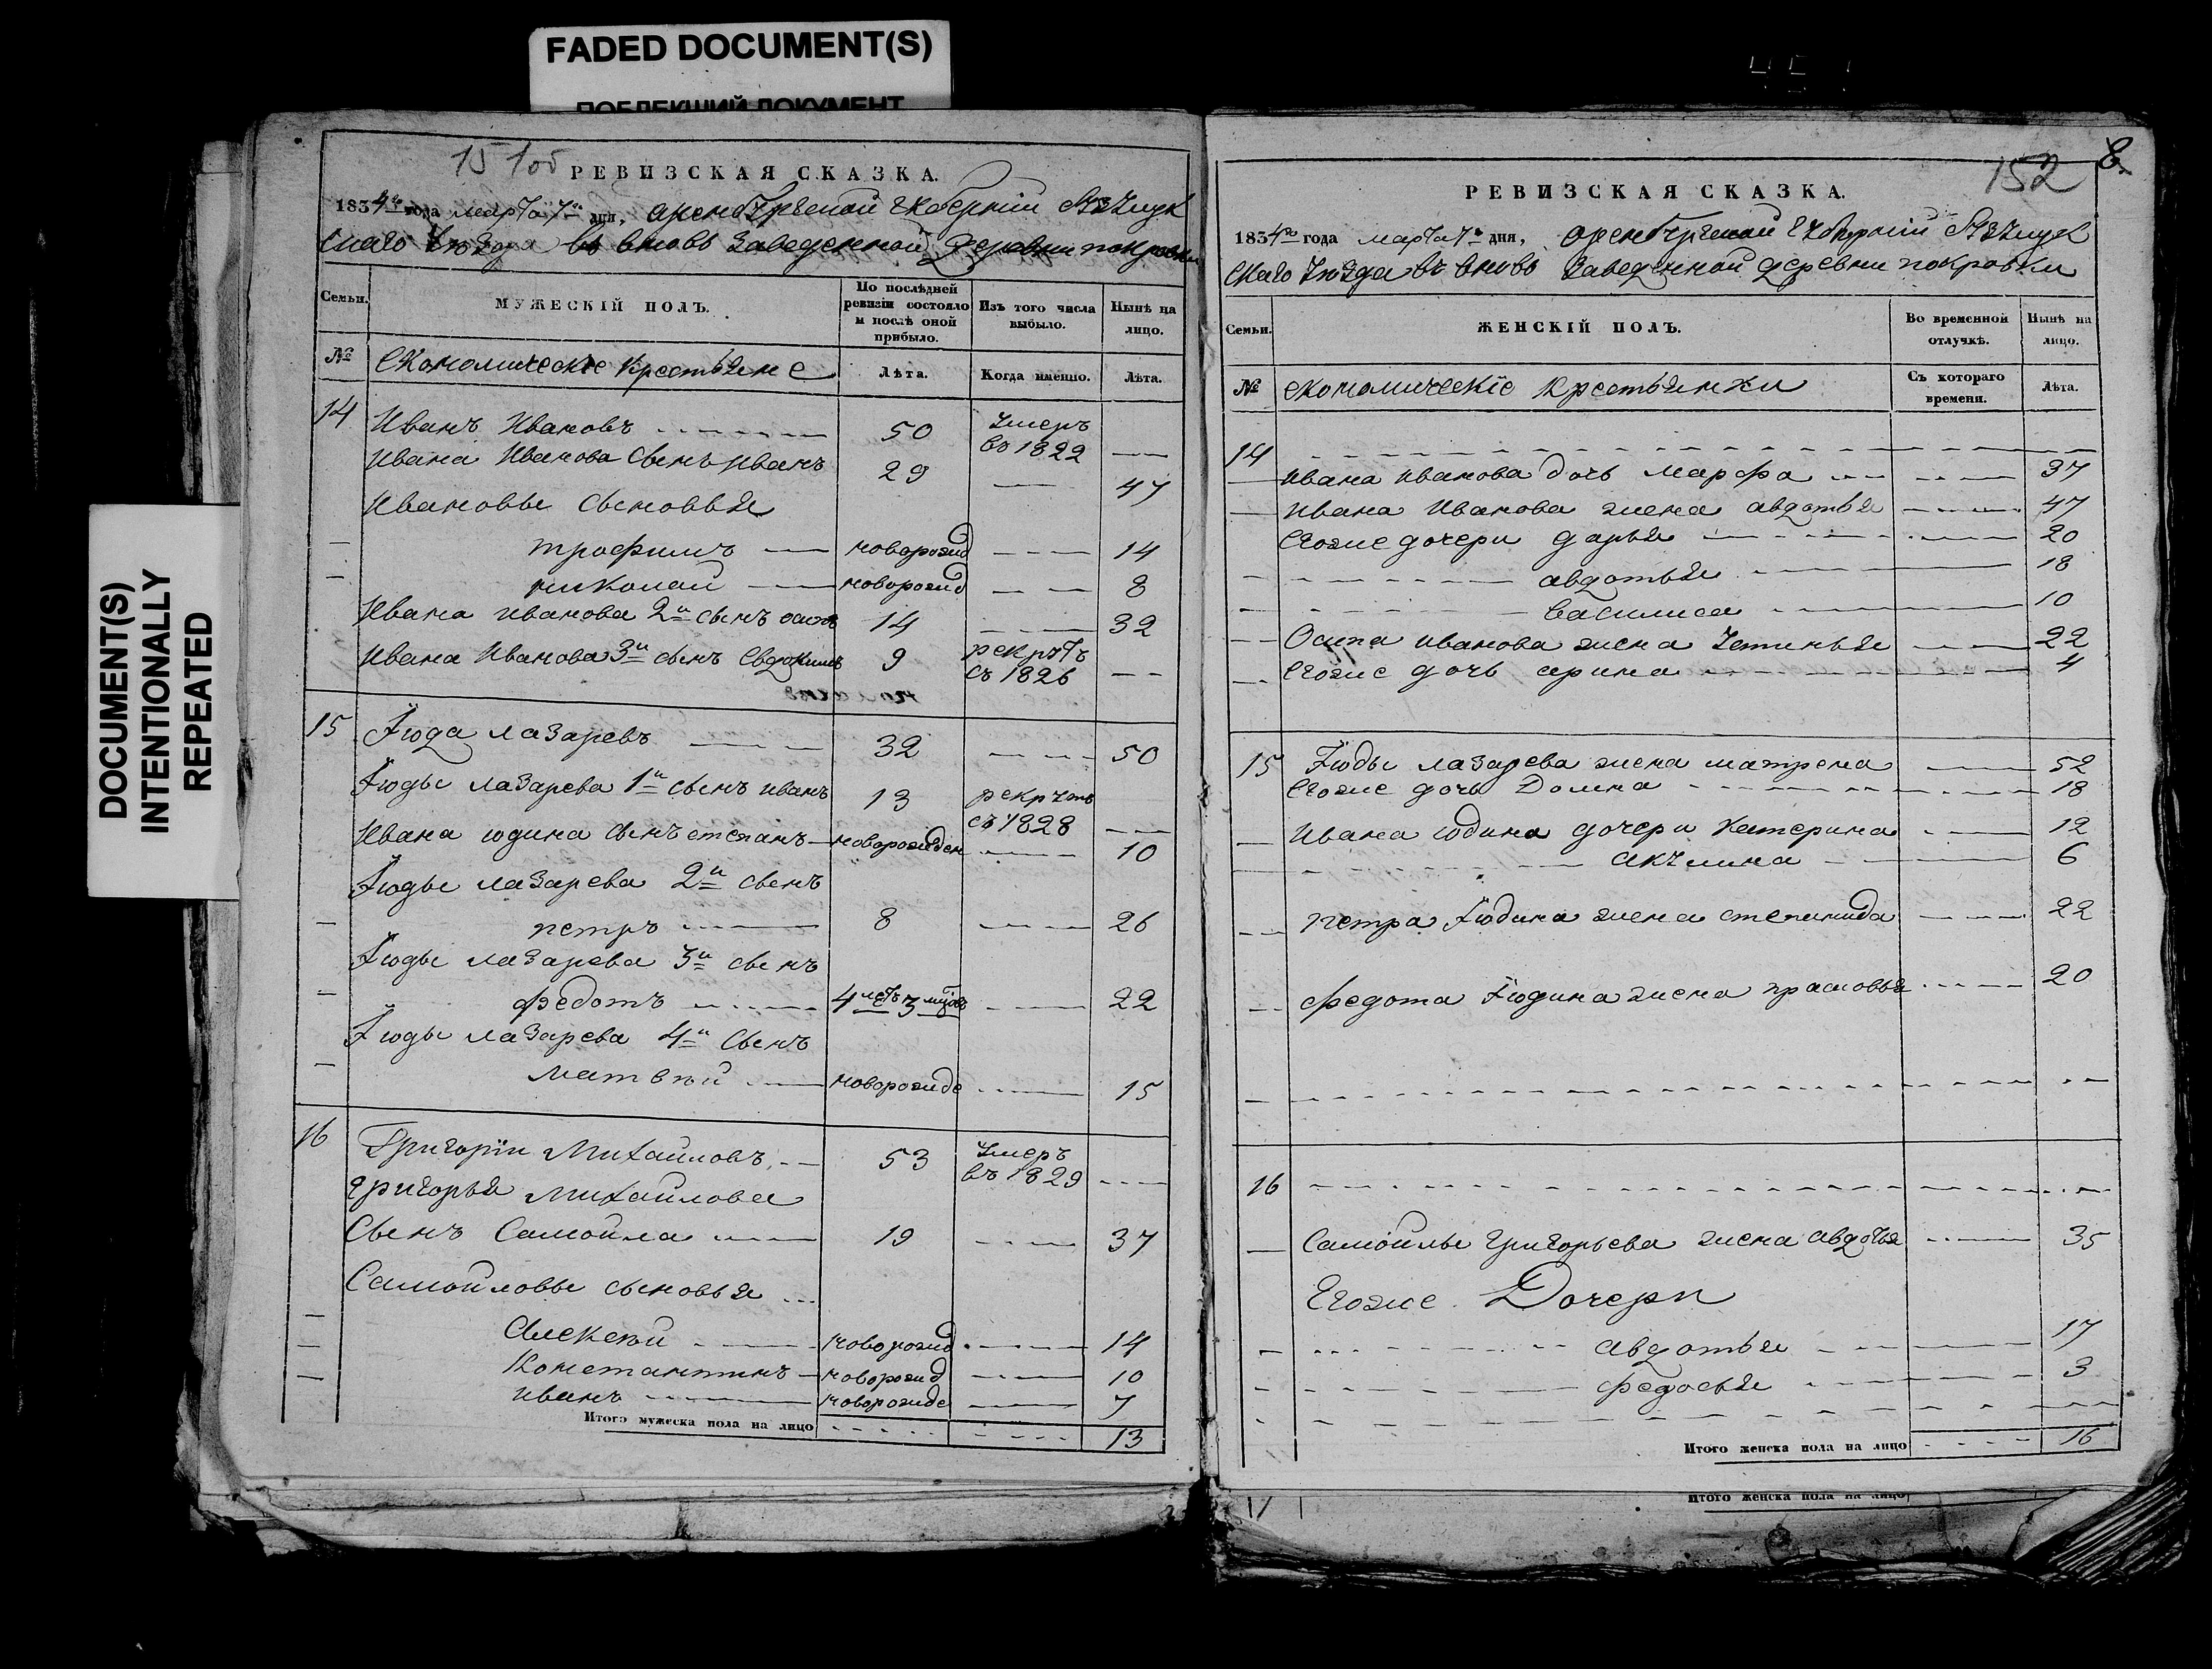 FADED DOCUMENT(S)
ПОБЛЕКШИЙ ДОКУМЕНТ
DOCUMENT(S)
INTENTIONALLY
REPEATED
151об
РЕВИЗСКАЯ СКАЗКА.
1834го года марта 7го дня, оренбургской губернии
скаго уезда въ вновь заведенной деревни покровки
Семьи. МУЖЕСКІЙ ПОЛЪ. По послѣдней ревизіи состояло и послѣ оной прибыло. Изъ того числа выбыло. Нынѣ на лицо.
№ Економическіе крестьяне Лѣта. Когда именно. Лѣта.
14 Иванъ Ивановъ 50 Умеръ въ 1822
Ивана Иванова сынъ Иванъ 29 47
Ивановы сыновья
трофимъ новорожд 14
николай новорожд 8
Ивана иванова 2й сынъ осипъ 14 32
Ивана Иванова 3й сынъ Евдокимъ 9 рекрутъ съ 1826
15 Июда лазаревъ 32 50
Июды лазарева 1й сынъ иванъ 13 рекрутъ съ 1828
Ивана юдина сынъ степанъ новорожден 10
Июды лазарева 2й сынъ
петръ 8 26
Июды лазарева 3й сынъ
федотъ 4 летъ 3 22
Июды лазарева 4й сынъ
матвѣй новорожде 15
16 Григорїй Михайловъ 53 Умеръ въ 1829
григорья михайлова
Сынъ Самойла 19 37
Самойловы сыновья
Алексѣй новорожд 14
Константинъ новорожд 10
иванъ новорожде 7
Итого мужеска пола на лицо 13
152
РЕВИЗСКАЯ СКАЗКА.
1834го года марта 7го дня, оренбургской губернїи
скаго уѣзда въ вновь заведенной деревни покровки
Семьи. ЖЕНСКІЙ ПОЛЪ. Во временной отлучкѣ. Нынѣ на лицо.
№ економическїе крестьянки Съ котораго времени. Лѣта.
14
ивана иванова дочь марфа 37
Ивана Иванова жена авдотья 47
Егоже дочери дарья 20
авдотья 18
василиса 10
Осипа иванова жена Устинья 22
Егоже дочь арина 4
15 Июды лазарева жена матрена 52
Егоже дочь Домна 18
Ивана юдина дочери катерина 12
акулина 6
петра Июдина жена степанида 22
федота Июдина жена прасковья 20
16
Самойлы григорьева жена авдотья 35
Егоже Дочери
авдотья 17
федосья 3
Итого женска пола на лицо 16
Итого женска пола на лицо